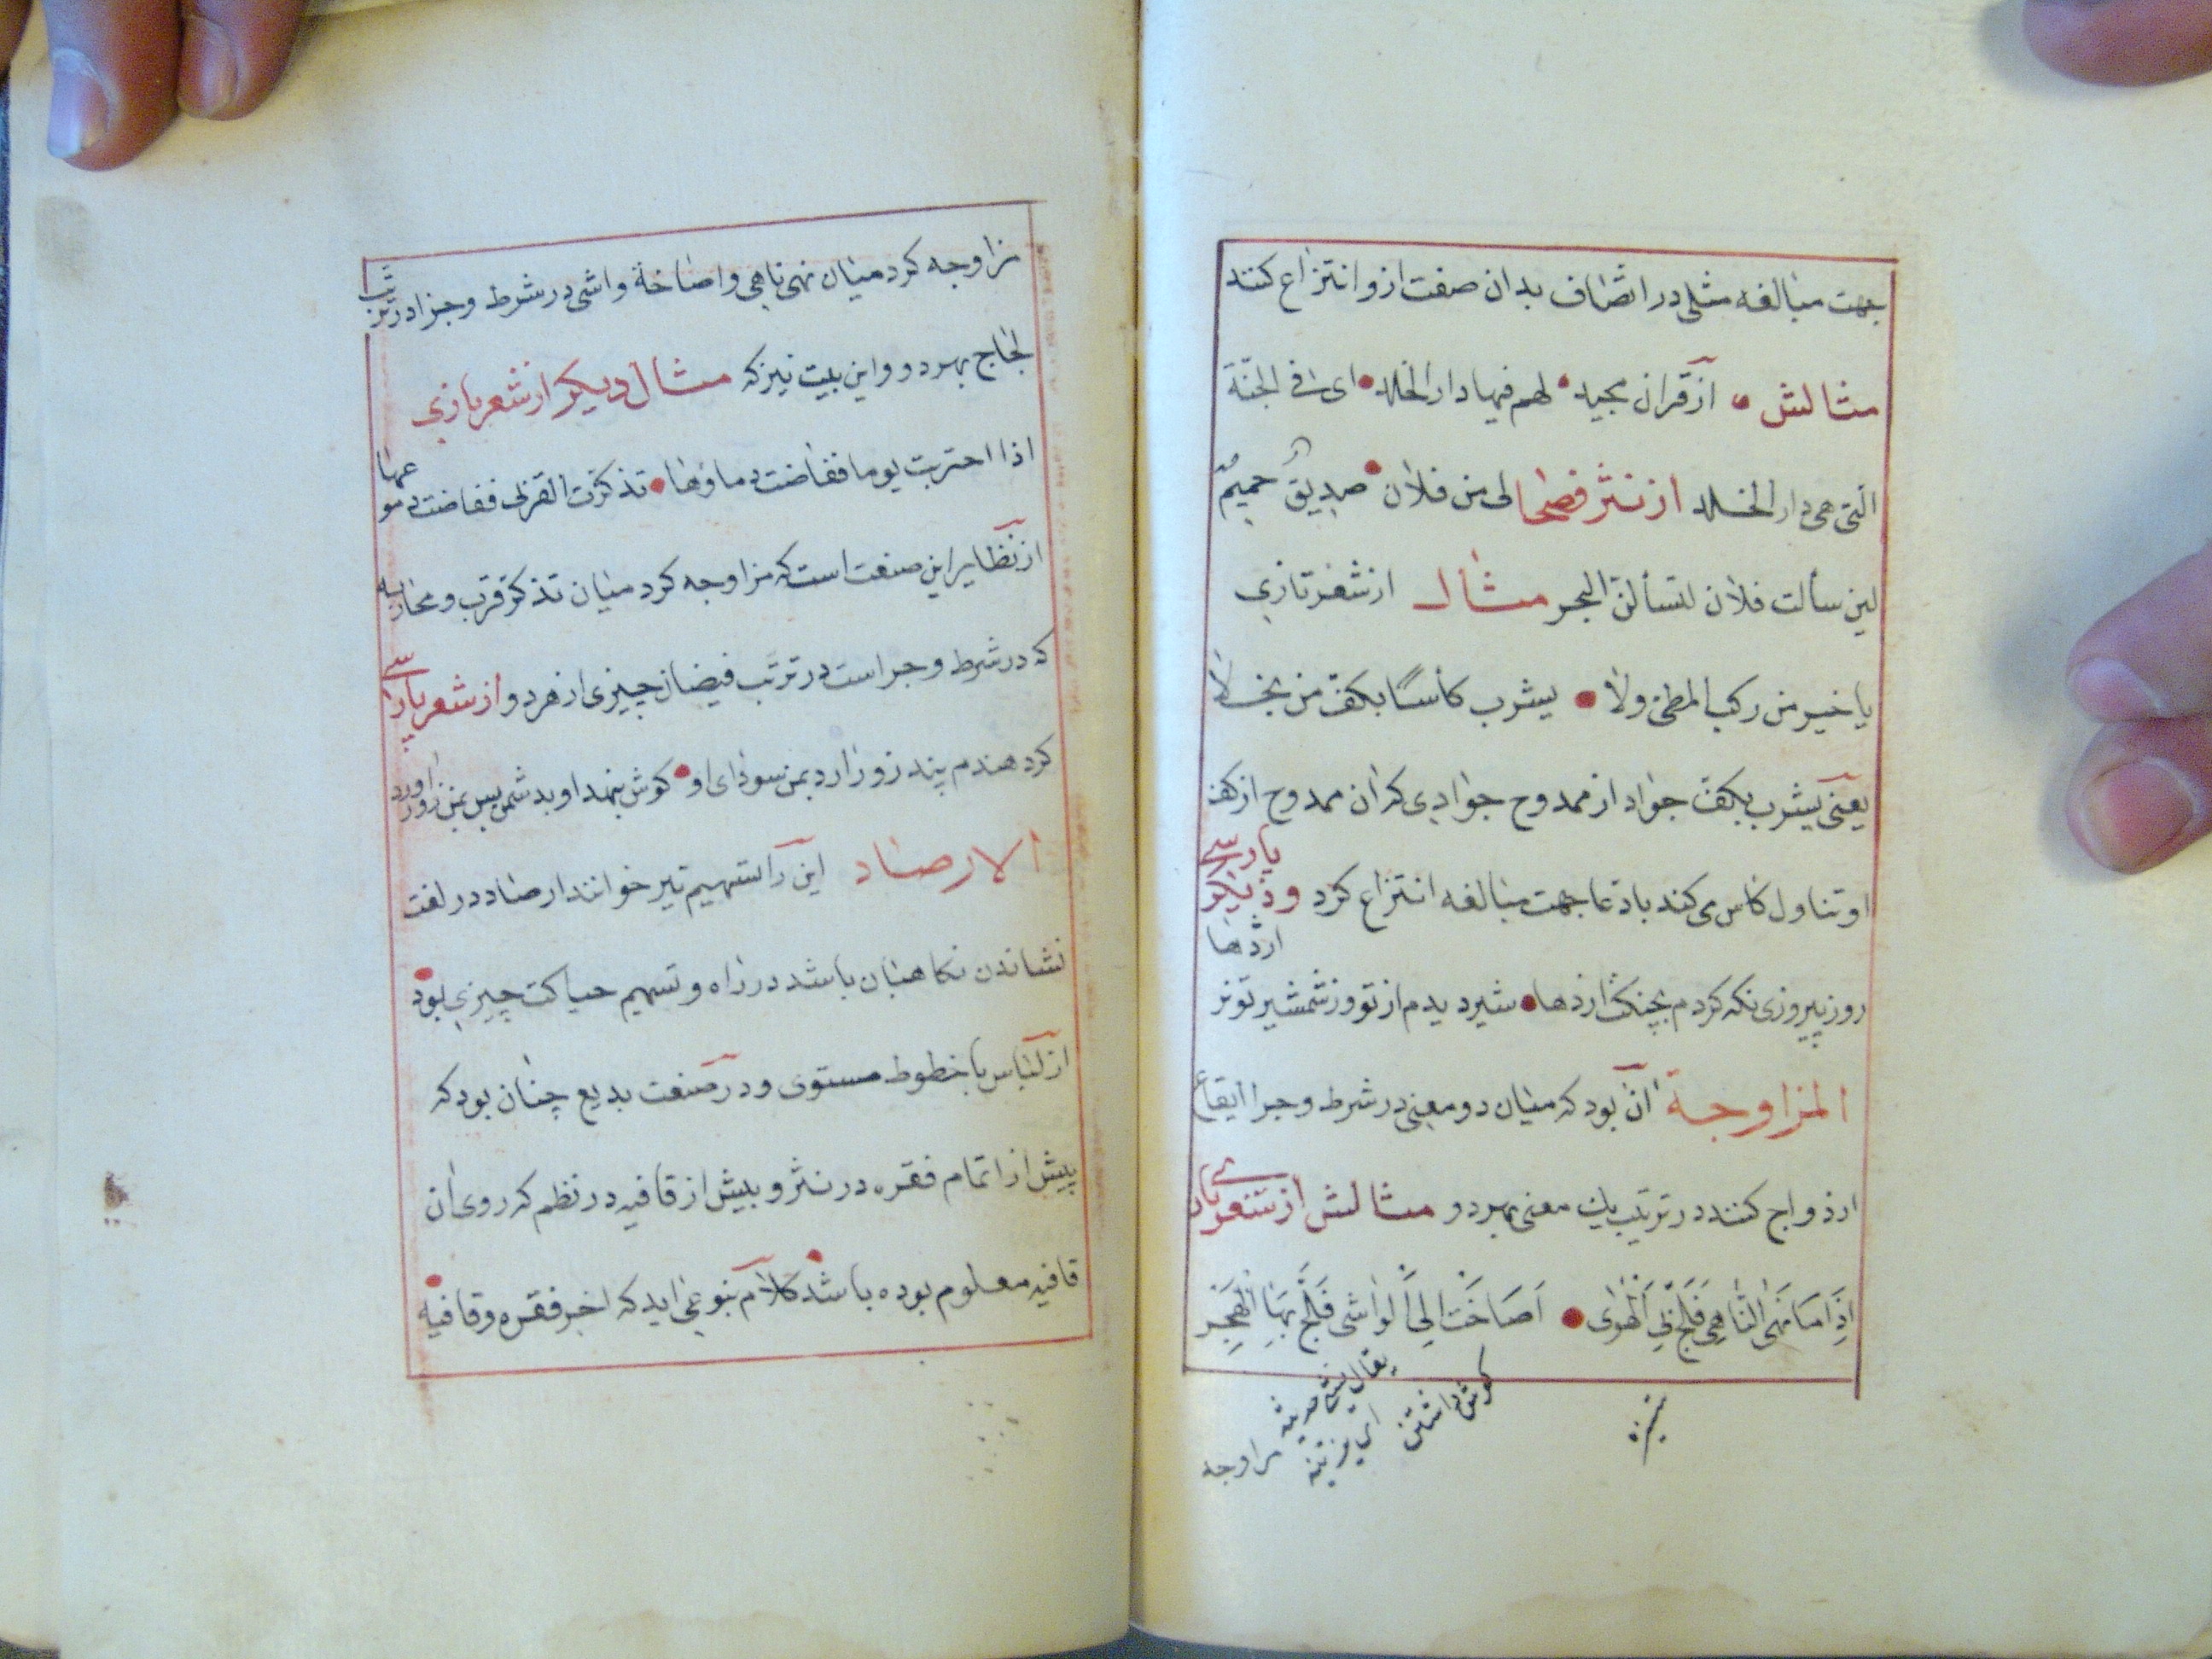 بجهت مبالغه مثلی در اتصاف بدان صفت ازو انتزاع کنند
مثالش از قران مجید لهم فیها دار الخلد ای فی الجنّة
الّتی هی دار الخلد از نثر فصحا لی من فلان صدیق حمیم
لین سألت فلان لتسألنّ البحر مثال از شعر تازی
یا خیر من رکب المطیّ ولا یشرب کأسًا بکفّ من بخلا
یعنی یشرب بکفّ جواد از ممدوح جوادی که ان ممدوح از کف
او تناول کاس می کند بادعا جهت مبالغه انتزاع کرد و دیکر پارسے
روز پیروزی نکه کردم بچنکت اژدها شیر دیدم از تو وز شمشیر تو نر اژدها
المزاوجة ان بود که میان دو معنی در شرط و جزا ایقاع
ازدواج کنند در ترتب یك معنی بهر دو مثالش از شعر تازے
اِذَا مَا نَهَی النَّاهِی فَلَجَّ بِیَ الْهَوٰی اَصَاخَت اِلَی الْوٰاشی فَلَجَّ بِهَا الْهَجْرُ
ستیزه
کوش داشتن
مزاوجه
مزاوجه کرد میان نهی ناهی و اصاخهٔ واشی در شرط و جزا در ترتّب
لجاج بهر دو و این بیت نیز که مثال دیکر از شعر تازی
اذا احتربت یوما ففاضت دماؤها تذکرت القربی ففاضت دموعها
از نظایر این صنعت است که مزاوجه کرد میان تذکر قرب و محاربه
که در شرط و جزاست در ترتّب فیضان چیزی از هر دو و از شعر پارسے
کر دهندم پند زور ارد بمن سودای او کوش بنهد او بدشمن پس بمن زور اورد
الارصاد این را تسهیم نیز خوانند ارصاد در لغت
نشاندن نکاهبان باشد در راه و تسهیم حیاکت چیزی بود
از لباس با خطوط مستوی و در صنعت بدیع چنان بود که
پیش از اتمام فقره در نثر و پیش از قافیه در نظم که روی ان
قافیه معلوم بوده باشد کلام بنوعی اید که اخر فقره و قافیه